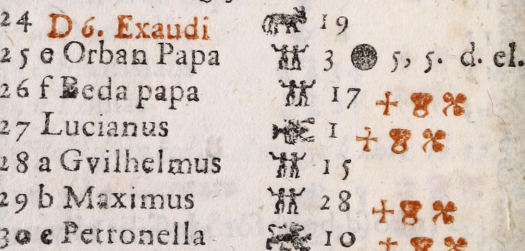 24 D 6. Exaudi 19
25 e Orban Papa 3 5, 5. d. el.
26 f Beda papa 17
27 Lucianus 1
28 a Gvilhelmus 15
29 b Maximus 28
30 c Petronella 10